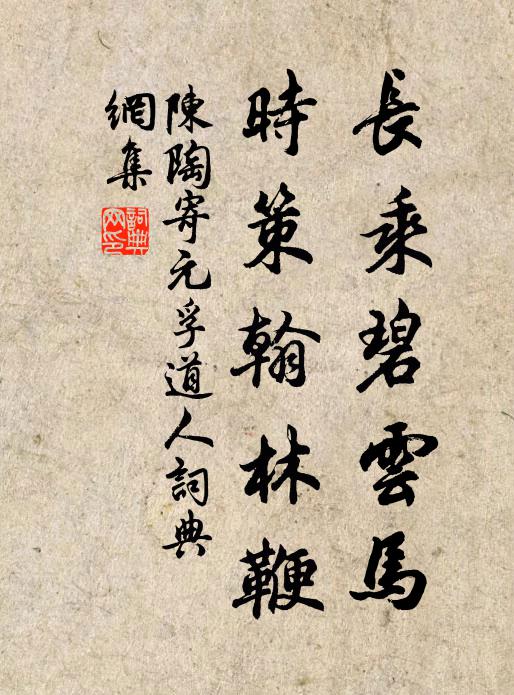 長乘碧雲馬
時策翰林鞭
陳陶寄元孚道人詞典
網集
詞典
网印